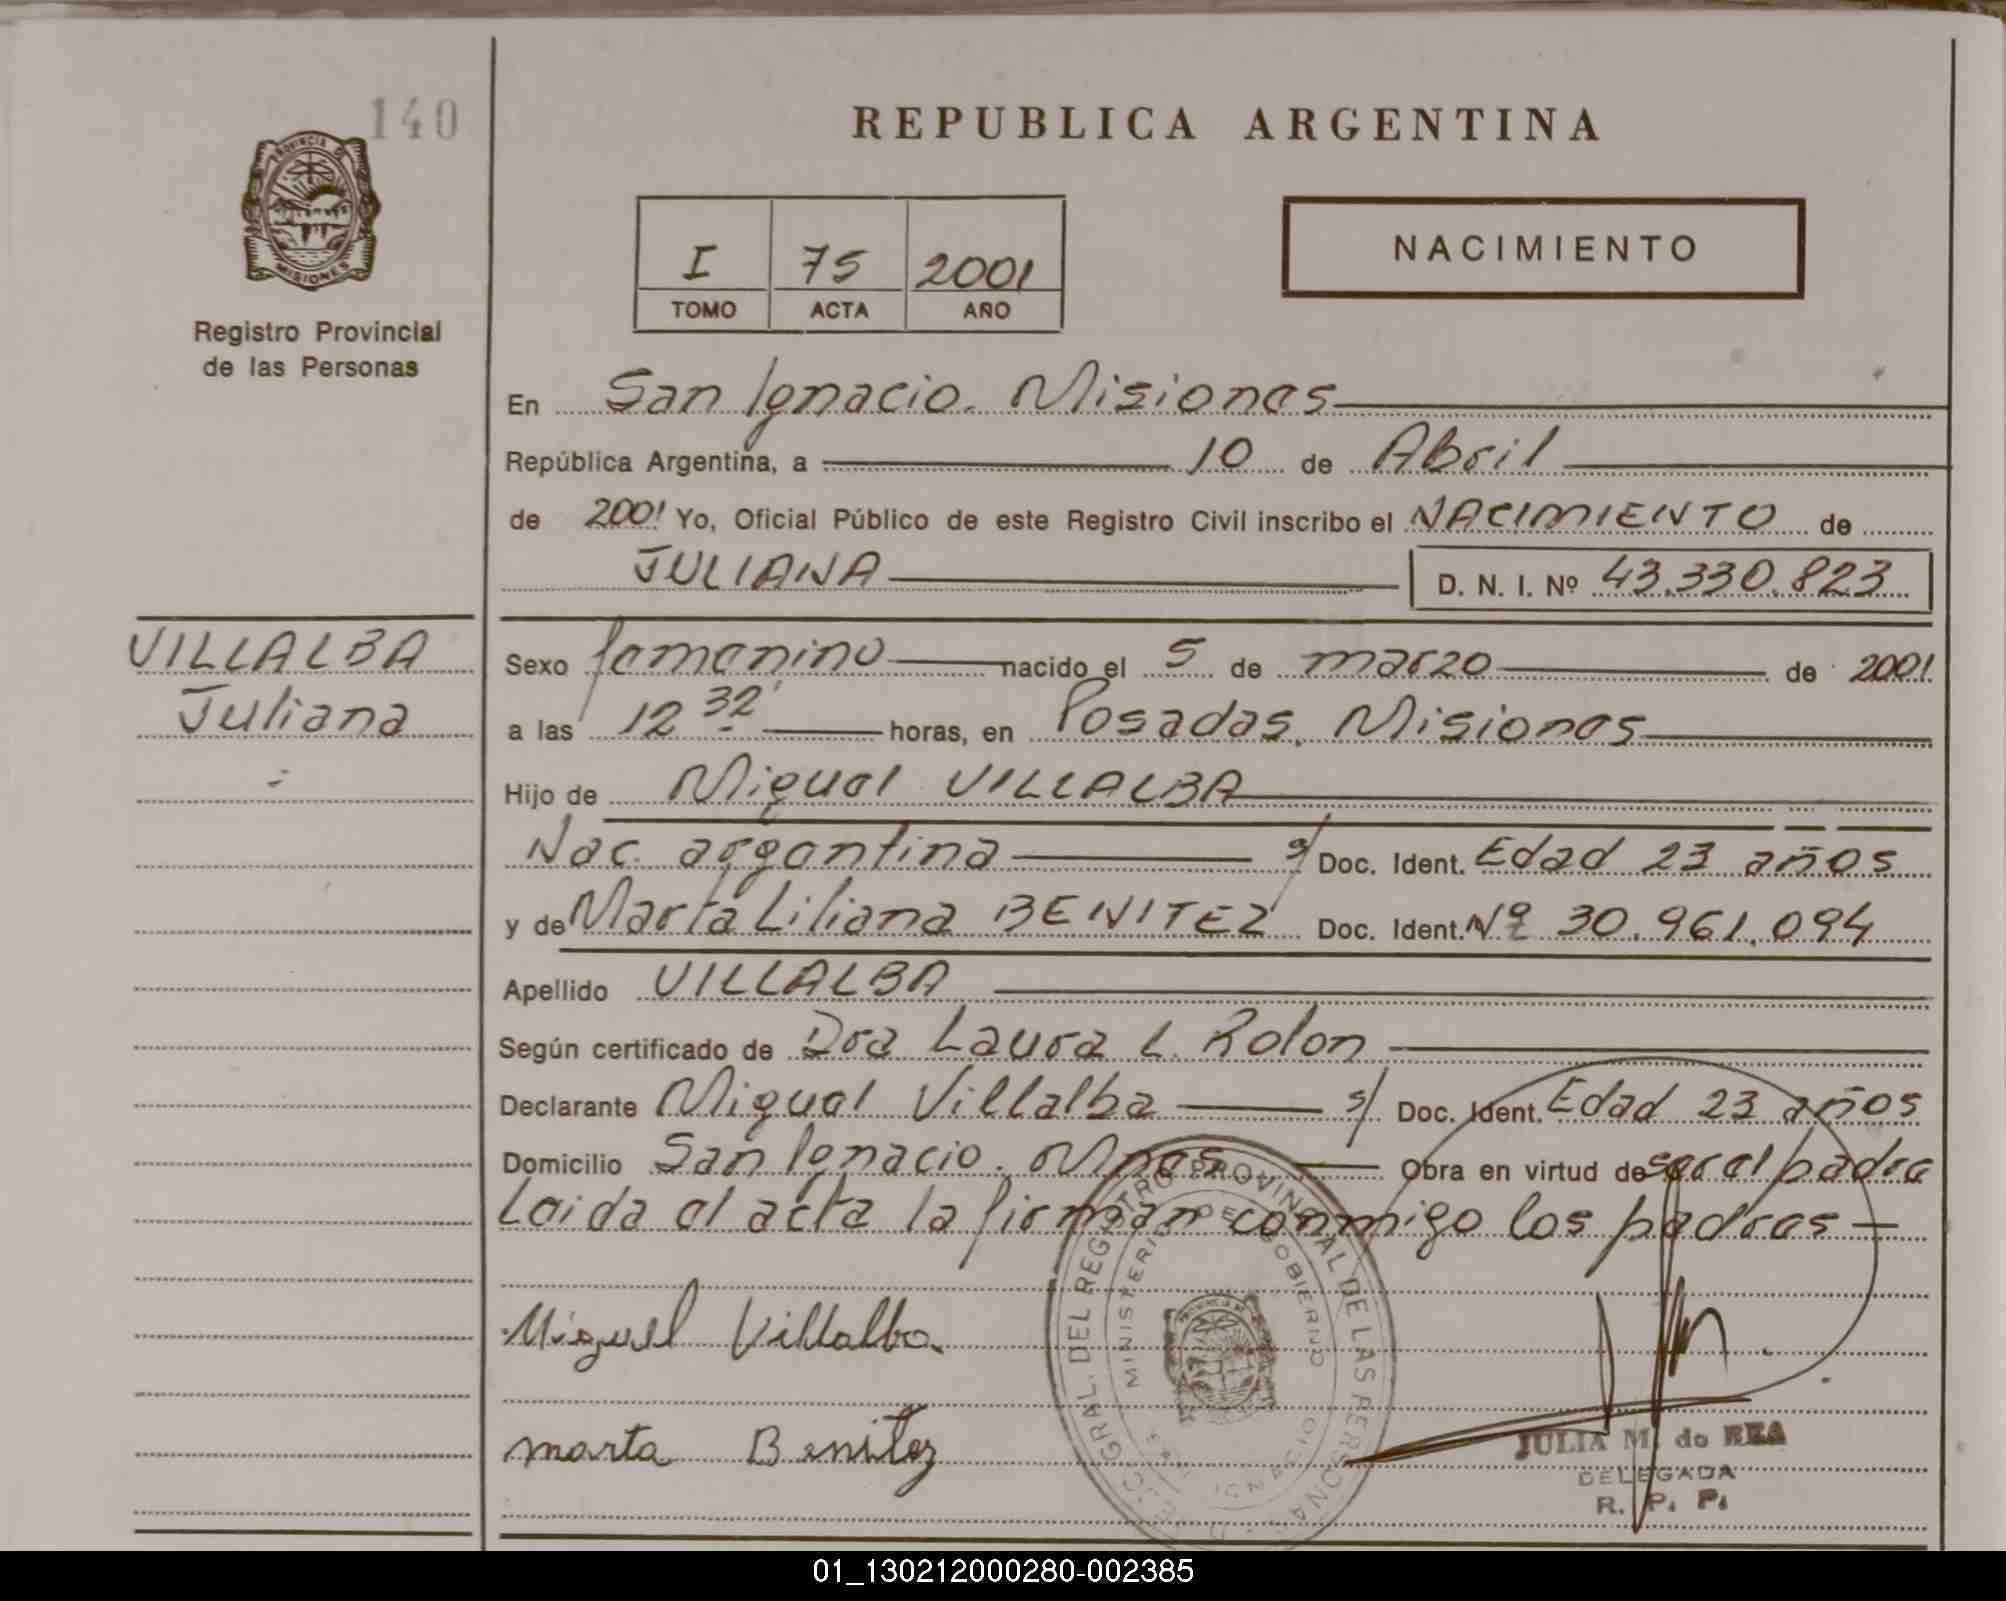 140
PROVINCIA DE
MISIONES
Registro Provincial
de las Personas
REPUBLICA ARGENTINA
I 75 2001
TOMO ACTA AÑO
NACIMIENTO
En San Ignacio. Misiones
República Argentina, a 10 de Abril
de 2001 Yo, Oficial Público de este Registro Civil inscribo el NACIMIENTO de
JULIANA D. N. I. Nº 43.330.823
VILLALBA
Juliana
Sexo femenino nacido el 5 de marzo de 2001
a las 12 32' horas, en Posadas. Misiones
Hijo de Miguel VILLALBA
Nac. argentina s/ Doc. Ident. Edad 23 años
y de Marta Liliana BENITEZ Doc. Ident. Nº 30.961.094
Apellido VILLALBA
Según certificado de Dra Laura L. Rolon
Declarante Miguel Villalba s/ Doc. Ident. Edad 23 años
Domicilio San Ignacio. Mnes Obra en virtud de ser el padre
Leida el acta la firman conmigo los padres
Miguel Villalba.
marta Benitez
GRAL. DEL REGISTRO PROVINCIAL DE LAS PERSONAS
MINISTERIO DE GOBIERNO
JULIA M. de REA
DELEGADA
R. P. P.
01_130212000280-002385